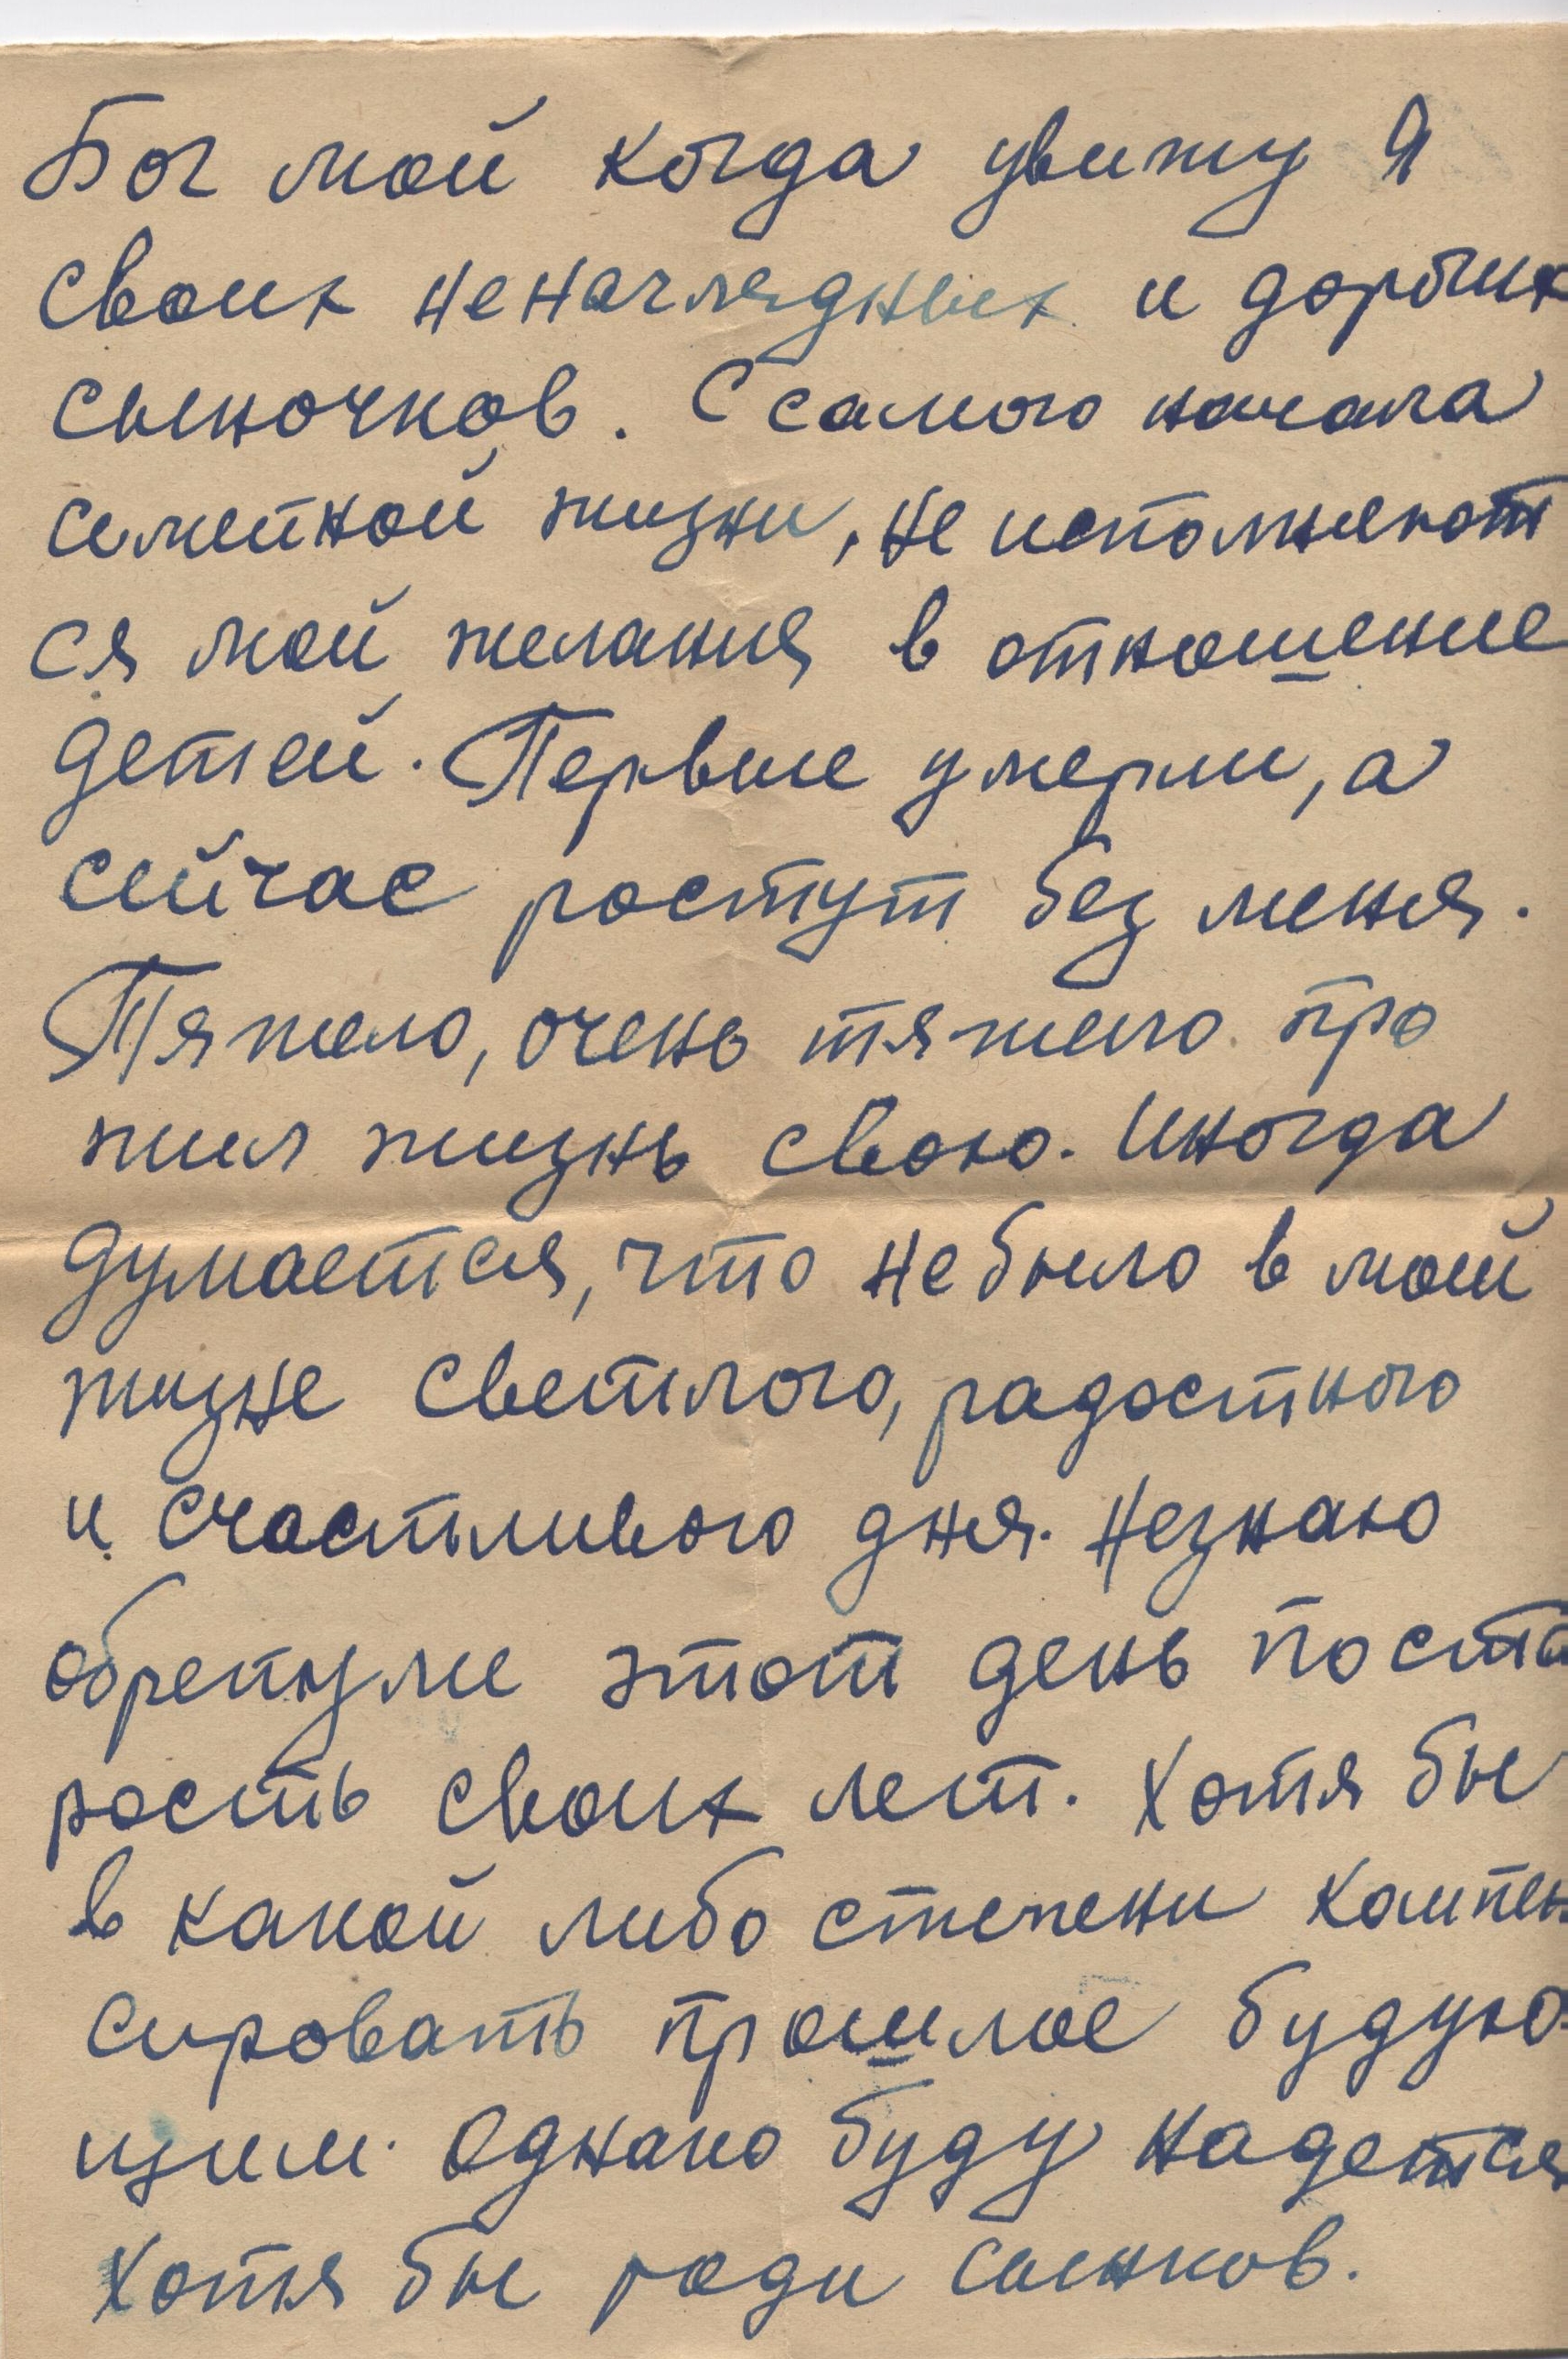 Бог мой когда увижу я
своих ненаглядных и дорогих
сыночков. С самого начала
семейной жизни, не исполняют
ся мои желания в отношение
детей. Первые умерли, а
сейчас ростут без меня.
Тяжело, очень тяжело про
жил жизнь свою. Иногда
думается, что не было в моей
жизне светлого, радостного
и счастливого дня. Незнаю
обрету ли этот день поста
рость своих лет. Хотя бы
в какой либо степени компен
сировать прошлое будую-
щим. Однако буду надется
хотя бы ради сынков.